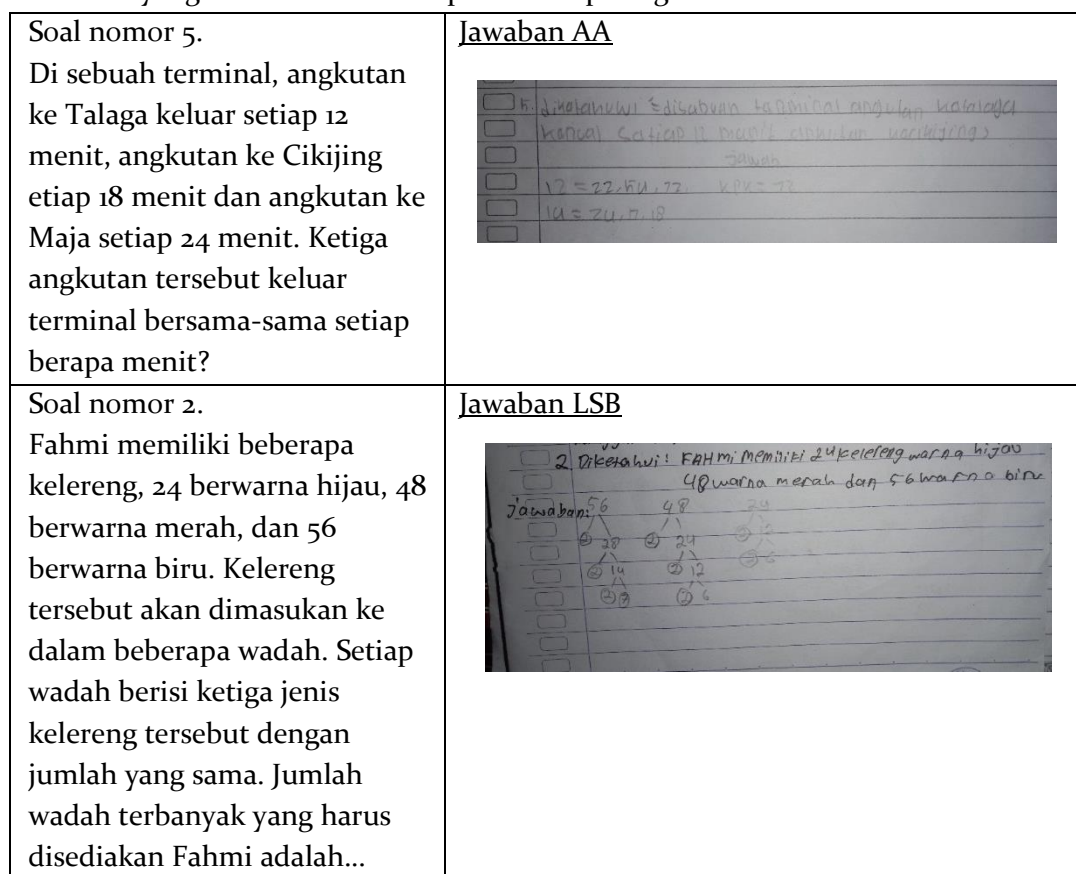 Soal nomor 5.
Di sebuah terminal, angkutan
ke Talaga keluar setiap 12
menit, angkutan ke Cikijing
etiap 18 menit dan angkutan ke
Maja setiap 24 menit. Ketiga
angkutan tersebut keluar
terminal bersama-sama setiap
berapa menit?
Jawaban AA
jawab
KPK = 72
Soal nomor 2.
Fahmi memiliki beberapa
kelereng, 24 berwarna hijau, 48
berwarna merah, dan 56
berwarna biru. Kelereng
tersebut akan dimasukan ke
dalam beberapa wadah. Setiap
wadah berisi ketiga jenis
kelereng tersebut dengan
jumlah yang sama. Jumlah
wadah terbanyak yang harus
disediakan Fahmi adalah...
Jawaban LSB
2. Diketahui: FAHmi memiliki 24 kelereng warna hijau
48 warna merah dan 56 warna biru
Jawaban: 56 48 24
2 28 2 24 2 12
2 14 2 12 2 6
2 7 2 6